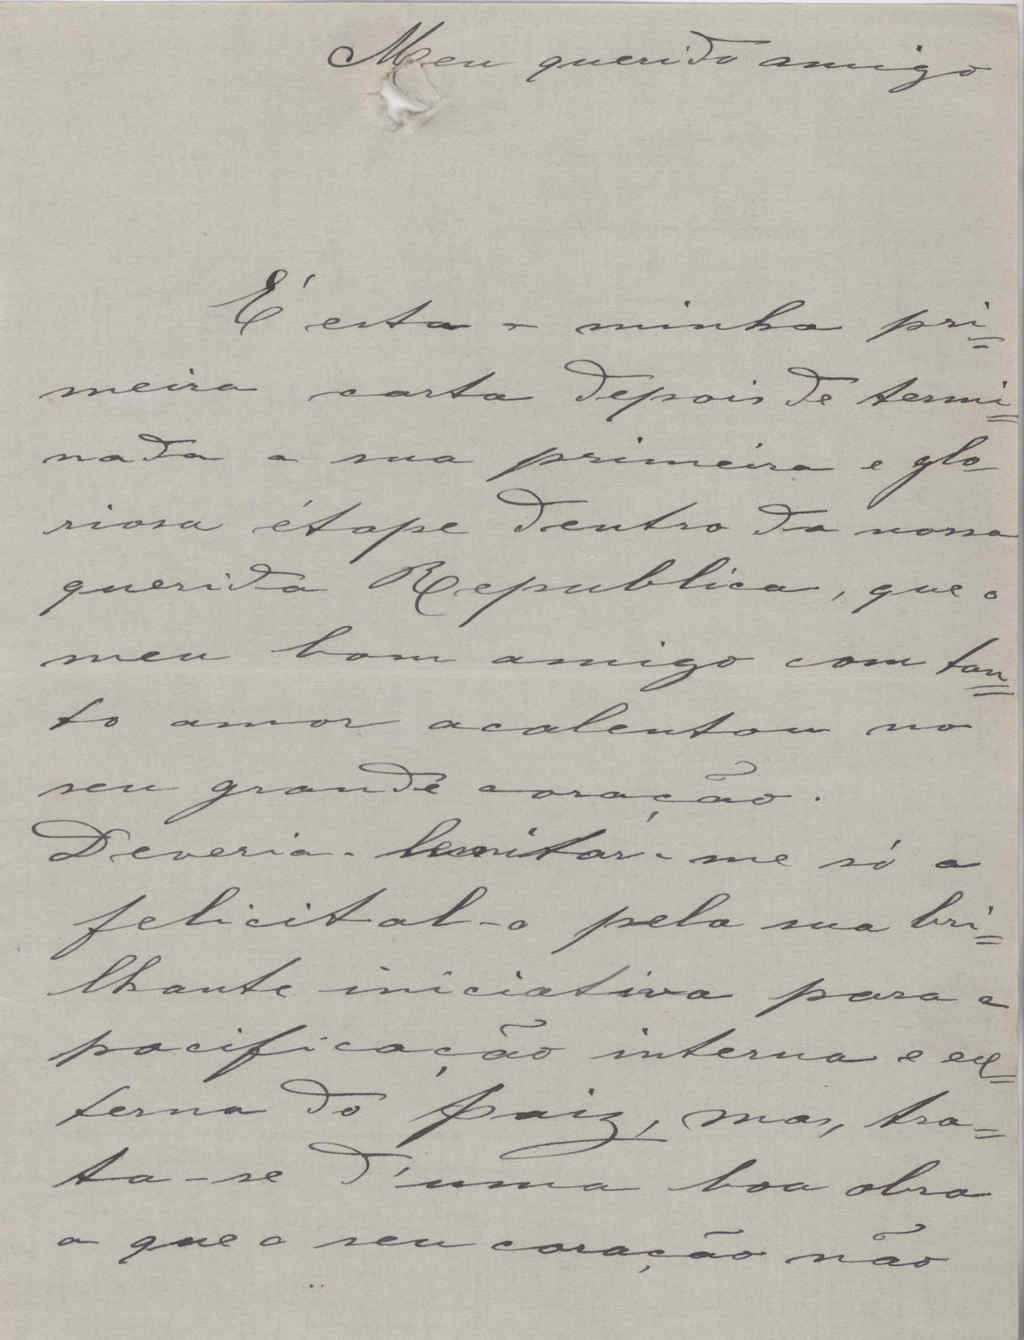 Meu querido amigo
É esta a minha pri=
meira carta depois de termi=
nada a sua primeira e glo-
riosa étape dentro da nossa
querida Republica, que o
meu bom amigo com tan=
to amor acalentou no
seu grande coração.
Deveria limitar-me só a
felicital-o pela sua bri=
lhante iniciativa para a
pacificação interna e ex=
terna do paiz, mas, tra=
ta-se d'uma boa obra
a que o seu coração não